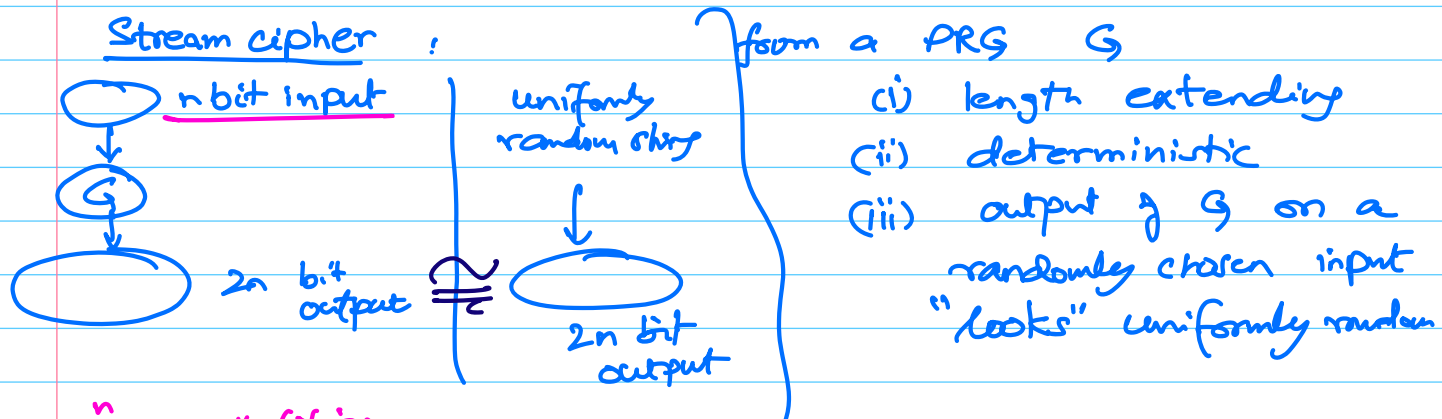 Stream cipher :
n bit input
G
2n bit
output
≅c
uniformly
random string
2n bit
output
from a PRG G
(i) length extending
(ii) deterministic
(iii) output of G on a
randomly chosen input
"looks" uniformly random
n